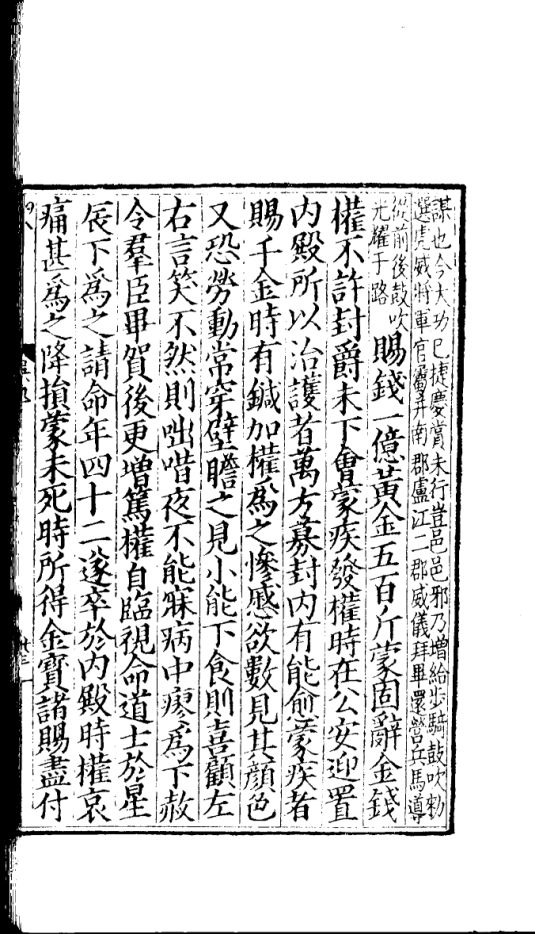 謀也今大功已捷慶賞未行豈邑邑邪乃增給步騎鼓吹勑
選虎威將軍官屬并南郡廬江二郡威儀拜畢還營兵馬導
從前後鼓吹
光耀于路
賜錢一億黃金五百斤蒙固辭金錢
權不許封爵未下會蒙疾發權時在公安迎置
内殿所以治護者萬方募封内有能愈蒙疾者
賜千金時有鍼加權爲之慘慼欲數見其顔色
又恐勞動常穿壁瞻之見小能下食則喜顧左
右言笑不然則咄唶夜不能寐病中瘳爲下赦
令羣臣畢賀後更增篤權自臨視命道士於星
辰下爲之請命年四十二遂卒於内殿時權哀
痛甚爲之降損蒙未死時所得金寶諸賜盡付
廿三